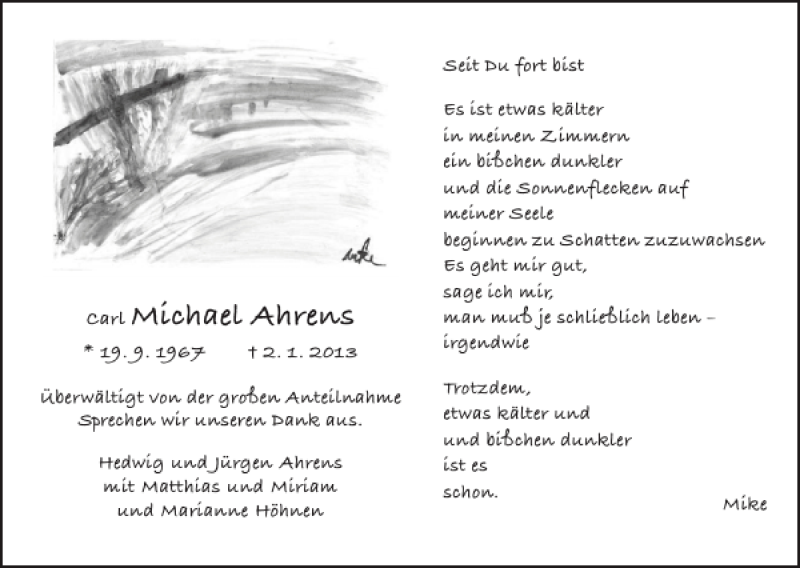 Carl Michael Ahrens
* 19. 9. 1967 † 2. 1. 2013
Überwältigt von der großen Anteilnahme
Sprechen wir unseren Dank aus.
Hedwig und Jürgen Ahrens
mit Matthias und Miriam
und Marianne Höhnen
Seit Du fort bist
Es ist etwas kälter
in meinen Zimmern
ein bißchen dunkler
und die Sonnenflecken auf
meiner Seele
beginnen zu Schatten zuzuwachsen
Es geht mir gut,
sage ich mir,
man muß je schließlich leben –
irgendwie
Trotzdem,
etwas kälter und
und bißchen dunkler
ist es
schon.
Mike